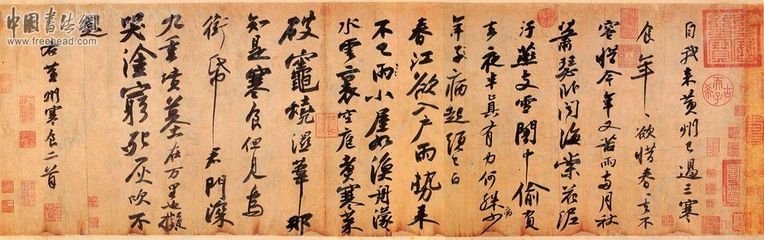 中國書法網
www.freehead.com
自我來黃州已過三寒
食年々欲惜春々去不
容惜今年又苦雨兩月秋
蕭瑟卧聞海棠花泥
汙燕支雪闇中偷負
去夜半真有力何殊少
病
年子病起頭已白
春江欲入户雨勢來
不已雨小屋如漁舟濛々
水雲裏空庖煮寒菜
破竈燒濕葦那
知是寒食但見烏
銜帋君門深
九重墳墓在万里也擬
哭塗窮死灰吹不
起
右黃州寒食二首